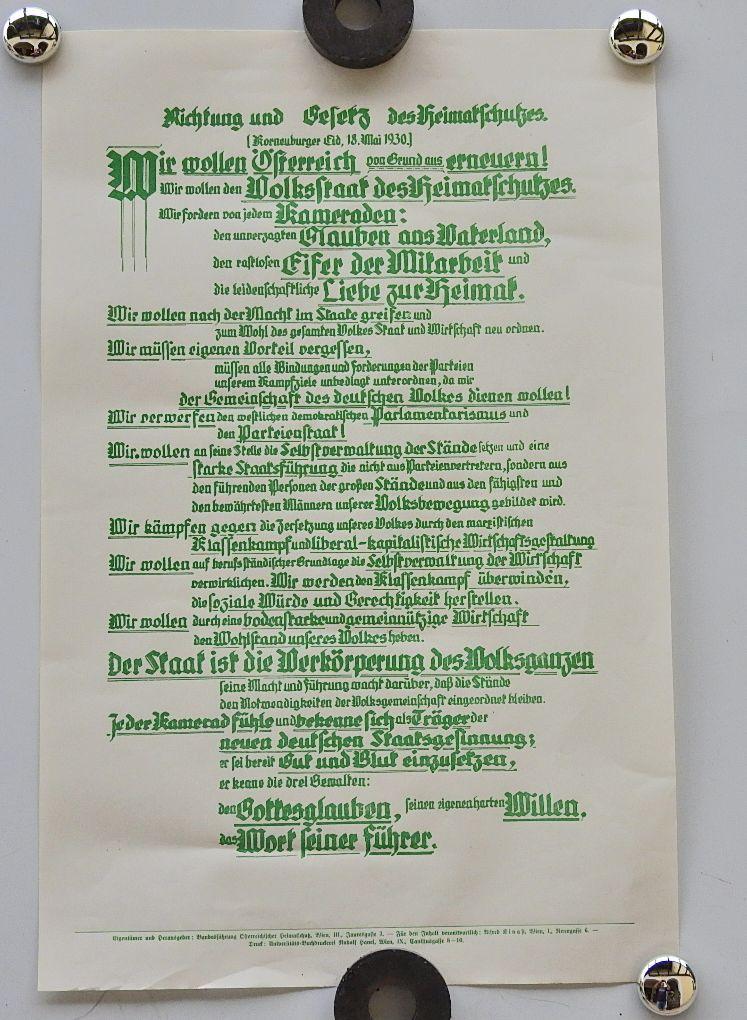 Richtung und Gesetz des Heimatschutzes.
(Korneuburger Eid, 18. Mai 1930.)
Wir wollen Österreich von Grund aus erneuern!
Wir wollen den Volksstaat des Heimatschutzes.
Wir fordern von jedem Kameraden:
den unverzagten Glauben ans Vaterland,
den rastlosen Eifer der Mitarbeit und
die leidenschaftliche Liebe zur Heimat.
Wir wollen nach der Macht im Staate greifen und
zum Wohl des gesamten Volkes Staat und Wirtschaft neu ordnen.
Wir müssen eigenen Vorteil vergessen,
müssen alle Bindungen und Forderungen der Parteien
unserem Kampfziele unbedingt unterordnen, da wir
der Gemeinschaft des deutschen Volkes dienen wollen!
Wir verwerfen den westlichen demokratischen Parlamentarismus und
den Parteienstaat!
Wir wollen an seine Stelle die Selbstverwaltung der Stände setzen und eine
starke Staatsführung, die nicht aus Parteienvertretern, sondern aus
den führenden Personen der großen Stände und aus den fähigsten und
den bewährtesten Männern unserer Volksbewegung gebildet wird.
Wir kämpfen gegen die Zersetzung unseres Volkes durch den marxistischen
Klassenkampf und liberal-kapitalistische Wirtschaftsgestaltung
Wir wollen auf berufsständischer Grundlage die Selbstverwaltung der Wirtschaft
verwirklichen. Wir werden den Klassenkampf überwinden,
die soziale Würde und Gerechtigkeit herstellen.
Wir wollen durch eine bodenstarke und gemeinnützige Wirtschaft
den Wohlstand unseres Volkes heben.
Der Staat ist die Verkörperung des Volksganzen
seine Macht und Führung wacht darüber, daß die Stände
den Notwendigkeiten der Volksgemeinschaft eingeordnet bleiben.
Jeder Kamerad fühle und bekenne sich als Träger der
neuen deutschen Staatsgesinnung;
er sei bereit Gut und Blut einzusetzen,
er kenne die drei Gewalten:
den Gottesglauben, seinen eigenen harten Willen,
das Wort seiner Führer.
Eigentümer und Herausgeber: Bundesführung Österreichischer Heimatschutz, Wien, III., Jauresgasse 3. — Für den Inhalt verantwortlich: Alfred Wien, I., 6. —
Druck: Universitäts-Buchdruckerei Rudolf Hanel, Wien, IX., 8–10.